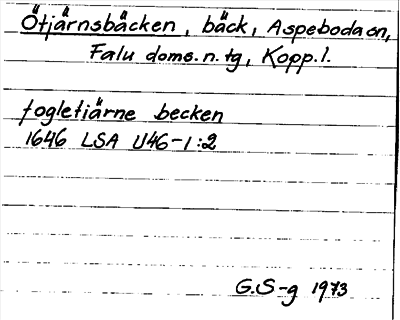 Ötjärnsbäcken, bäck, Aspeboda sn,
Falu doms. n. tg, Kopp. l.
fogletiärne becken
1646 LSA U46-1:2
G.S-g 1973